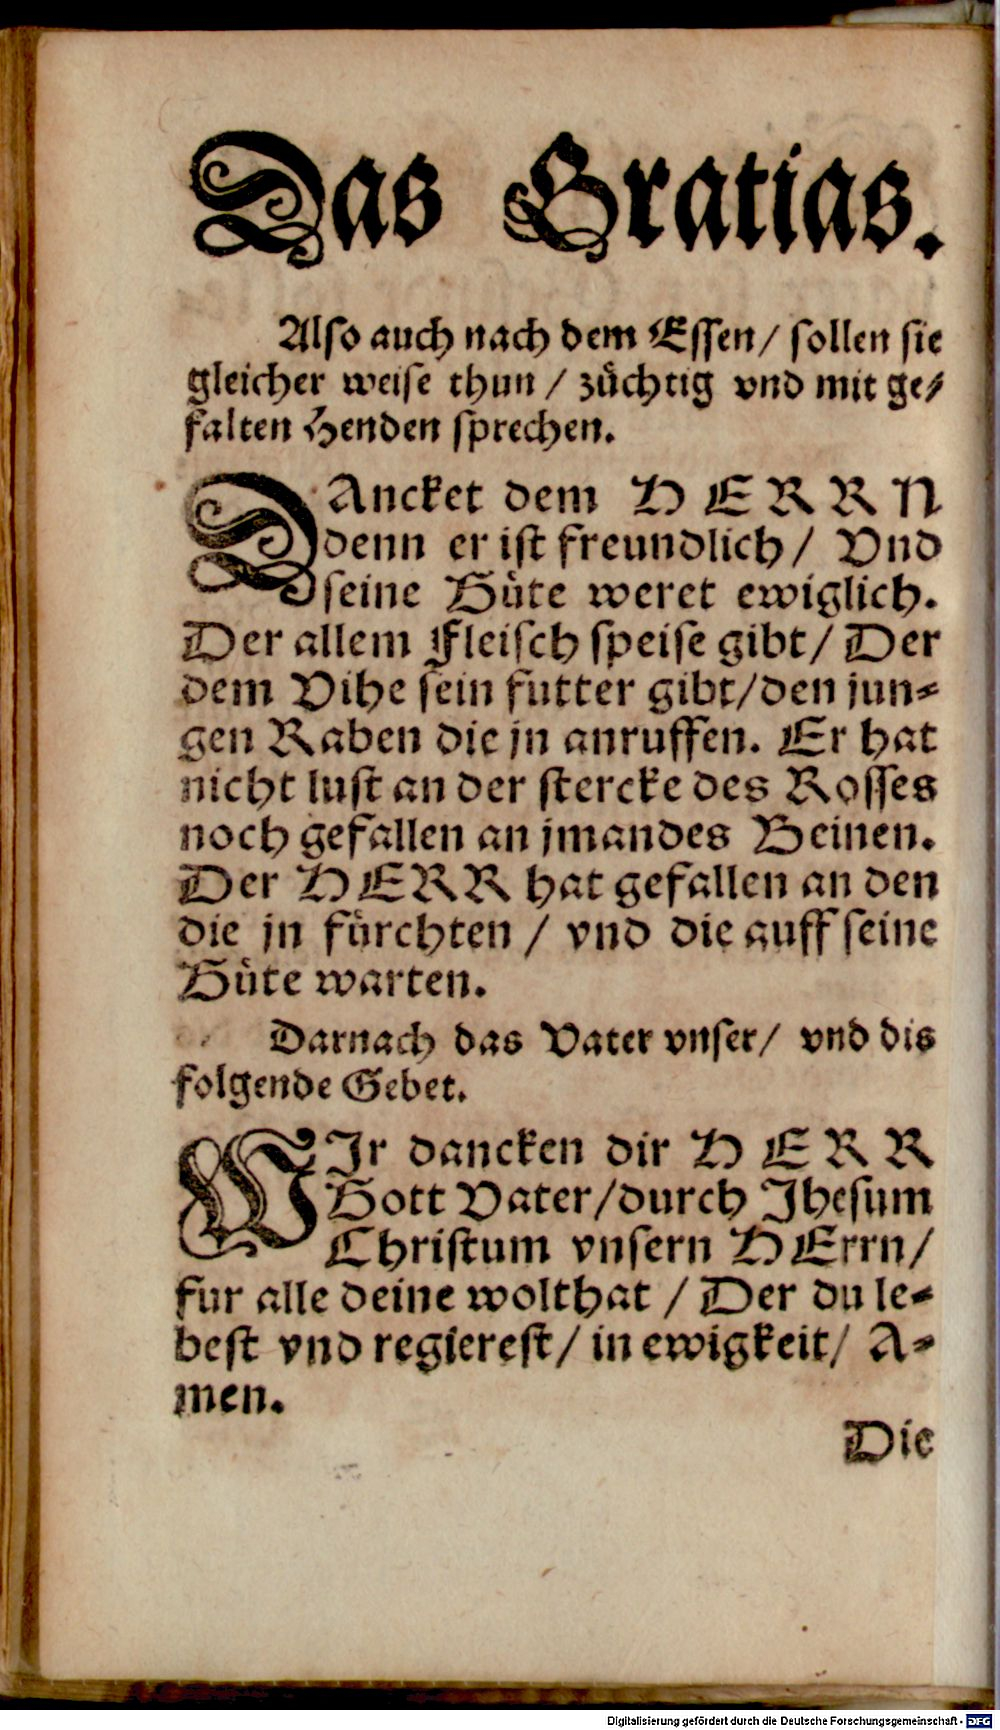 Das Gratias.
Also auch nach dem Essen/ sollen sie
gleicher weise thun / zůchtig vnd mit ge/
falten Henden sprechen.
DAncket dem HERRN
denn er ist freundlich/ Vnd
seine Gůte weret ewiglich.
Der allem Fleisch speise gibt/ Der
dem Vihe sein futter gibt/den jun⸗
gen Raben die jn anruffen. Er hat
nicht lust an der stercke des Rosses
noch gefallen an jmandes Beinen.
Der HERR hat gefallen an den
die jn fůrchten / vnd die auff seine
Gůte warten.
Darnach das Vater vnser/ vnd dis
folgende Gebet.
WIr dancken dir HERR
Gott Vater/durch Jhesum
Christum vnsern HErrn/
fur alle deine wolthat / Der du le⸗
best vnd regierest/ in ewigkeit/ A⸗
men.
Die
Digitalisierung gefördert durch die Deutsche Forschungsgemeinschaft - DFG